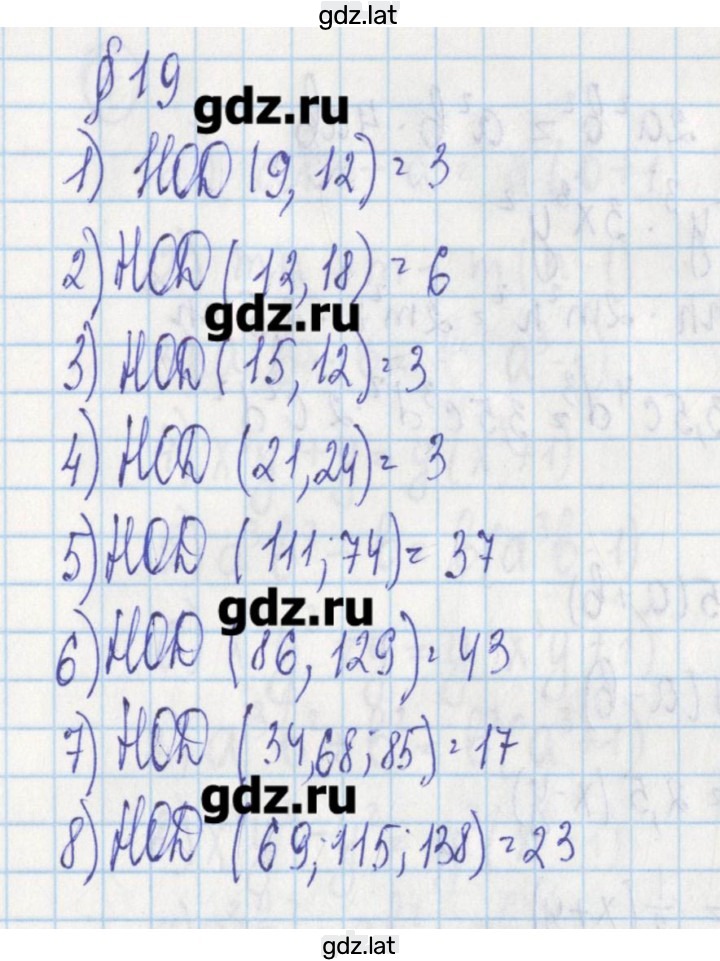 gdz.lat
§ 19
gdz.ru
1) НОД (9, 12) = 3
2) НОД (12, 18) = 6
gdz.ru
3) НОД (15, 12) = 3
4) НОД (21, 24) = 3
5) НОД (111; 74) = 37
gdz.ru
6) НОД (86, 129) = 43
7) НОД (34, 68; 85) = 17
gdz.ru
8) НОД (69; 115; 138) = 23
gdz.lat